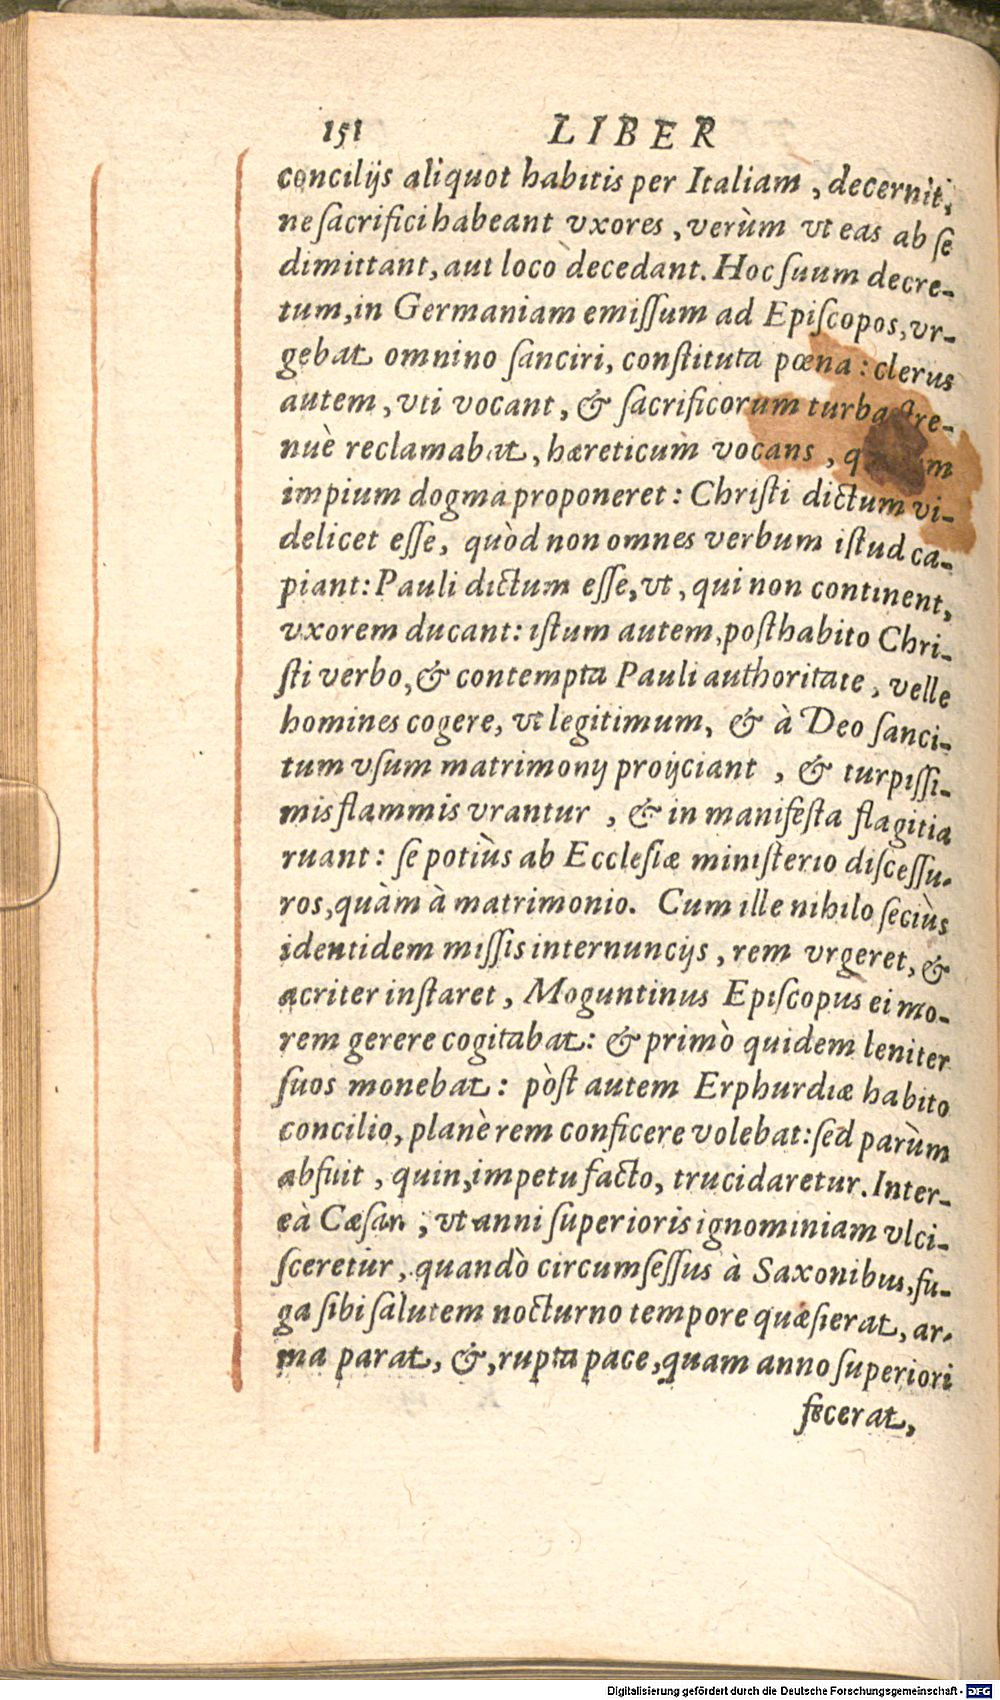 151 LIBER
concilijs aliquot habitis per Italiam, decernit,
ne ſacrifici habeant vxores, verùm vt eas ab ſe
dimittant, aut loco decedant. Hoc ſuum decre-
tum, in Germaniam emiſſum ad Epiſcopos, vr-
gebat omnino ſanciri, conſtituta pœna: clerus
autem, vti vocant, & ſacrificorum turba ſtre-
nuè reclamabat, hæreticum vocans,
impium dogma proponeret: Chriſti dictum vi-
delicet eſſe, quòd non omnes verbum iſtud ca-
piant: Pauli dictum eſſe, vt, qui non continent,
vxorem ducant: iſtum autem, poſthabito Chri-
ſti verbo, & contempta Pauli authoritate, velle
homines cogere, vt legitimum, & à Deo ſanci-
tum vſum matrimonij proijciant, & turpiſſi-
mis flammis vrantur, & in manifeſta flagitia
ruant: ſe potiùs ab Eccleſiæ miniſterio diſceſſu-
ros, quàm à matrimonio. Cum ille nihilo ſeciùs
identidem miſſis internuncijs, rem vrgeret, &
acriter inſtaret, Moguntinus Epiſcopus ei mo-
rem gerere cogitabat: & primò quidem leniter
ſuos monebat: pòſt autem Erphurdiæ habito
concilio, planè rem conficere volebat: ſed parùm
abfuit, quin, impetu facto, trucidaretur. Inter-
eà Cæſar, vt anni ſuperioris ignominiam vlci-
ſceretur, quandò circumſeſſus à Saxonibus, fu-
ga ſibi ſalutem nocturno tempore quæſierat, ar-
ma parat, &, rupta pace, quam anno ſuperiori
fecerat,
Digitalisierung gefördert durch die Deutsche Forschungsgemeinschaft - DFG